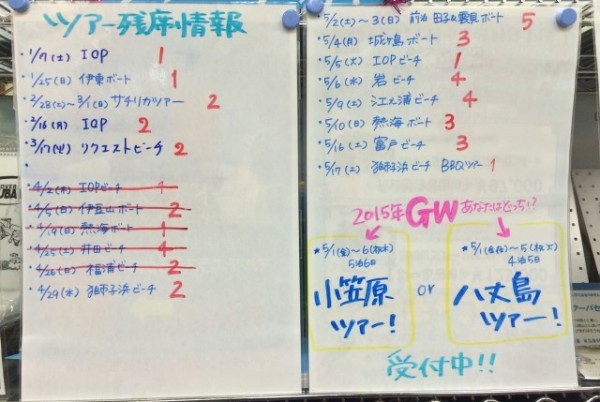 ツアー残席情報
・1/17(土) IOP 1
・1/25(日) 伊東ボート 1
・2/28(土)〜3/1(日) サチリカツアー 2
・2/16(月) IOP 2
・3/17(火) リクエストビーチ 2
・4/2(木) IOPビーチ 4
・4/5(日) 伊豆山ボート 2
・4/19(日) 熱海ボート 1
・4/25(土) 井田ビーチ 4
・4/26(日) 福浦ビーチ 2
・4/29(水) 獅子浜ビーチ 2
・5/2(土)〜3(日) 前泊 田子&雲見ボート 5
・5/4(月) 城ヶ島ボート 3
・5/5(火) IOPビーチ 1
・5/6(水) 岩ビーチ 4
・5/9(土) 江之浦ビーチ 4
・5/10(日) 熱海ボート 3
・5/16(土) 富戸ビーチ 3
・5/17(土) 獅子浜ビーチ BBQツアー 1
2015年GWあなたはどっち!?
★5/1(金)〜6(水)
5泊6日
小笠原
ツアー!
or
★5/1(金)〜5(火)
4泊5日
八丈島
ツアー!
受付中!!